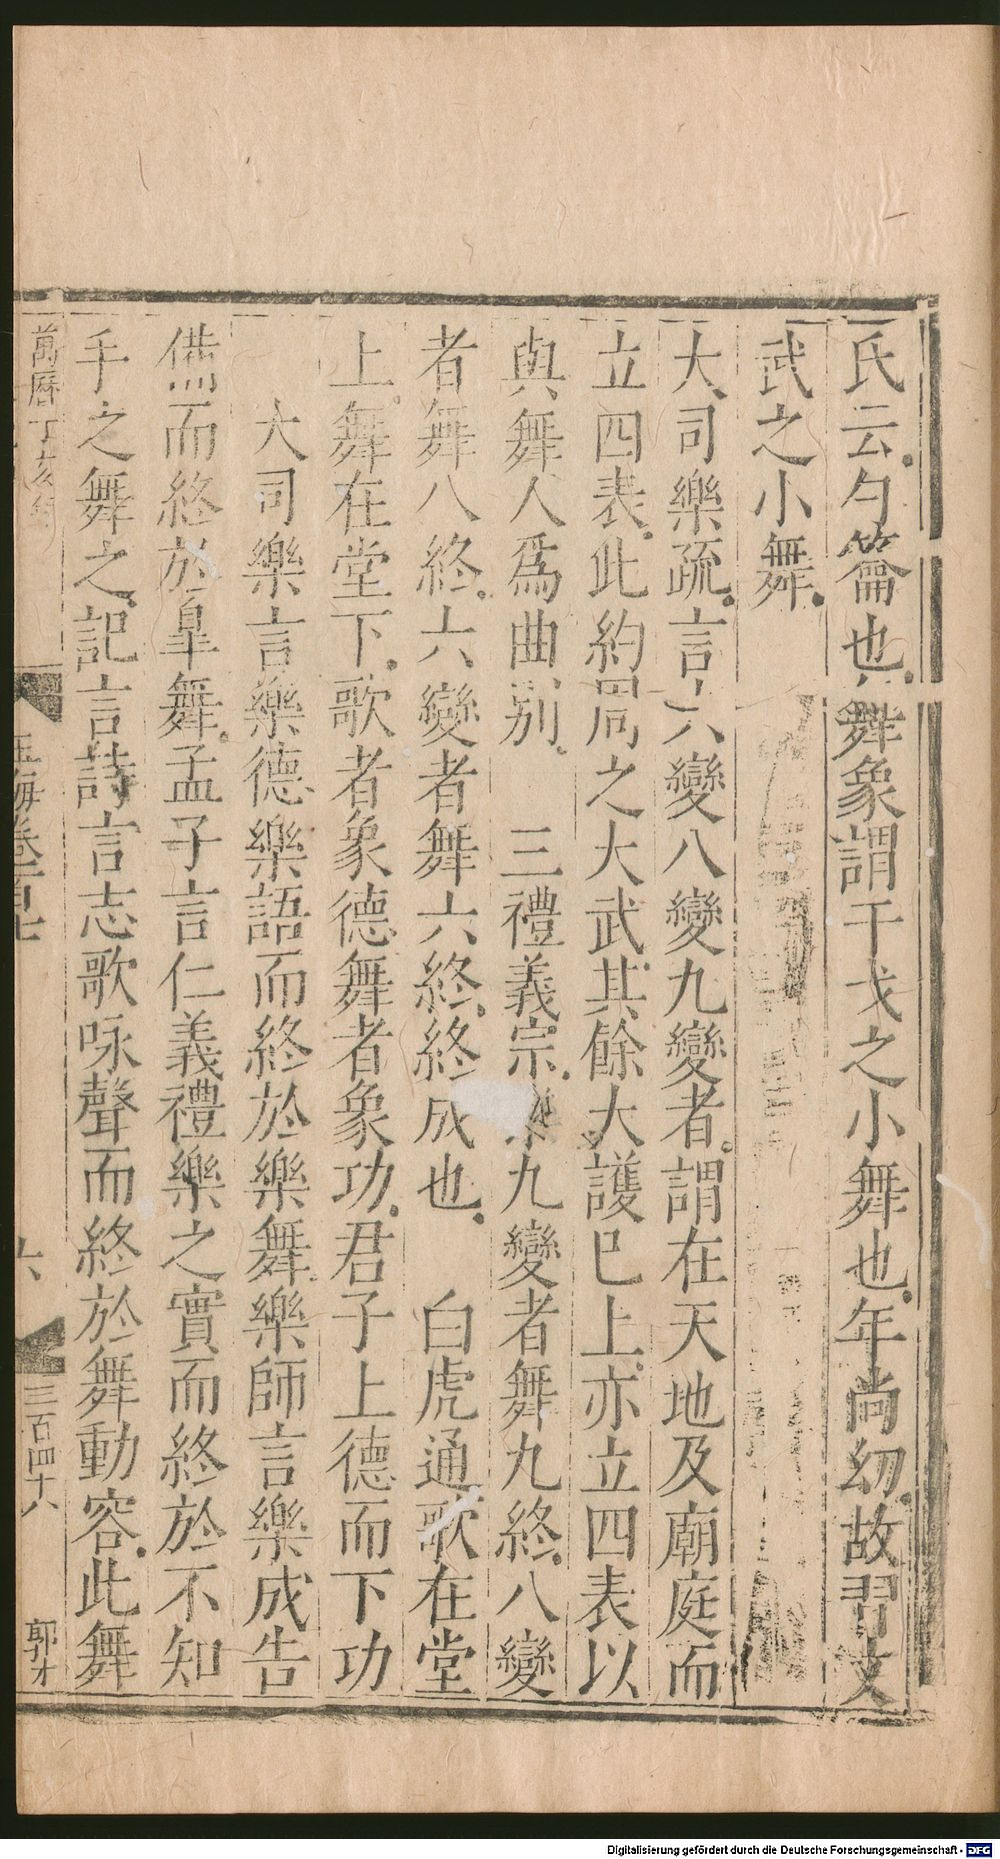 氏云勺籥也舞象謂干戈之小舞也年尚幼故習文
武之小舞
大司樂疏言六變八變九變者謂在天地及廟庭而
立四表此約周之大武其餘大護已上亦立四表以
與舞人爲曲別　三禮義宗樂九變者舞九終八變
者舞八終六變者舞六終終成也　白虎通歌在堂
上舞在堂下歌者象德舞者象功君子上德而下功
大司樂言樂德樂語而終於樂舞樂師言樂成告
備而終於臯舞孟子言仁義禮樂之實而終於不知
手之舞之記言詩言志歌咏聲而終於舞動容此舞
萬曆丁亥
玉海卷百七
六
三百四十八
郭才
Digitalisierung gefördert durch die Deutsche Forschungsgemeinschaft - DFG